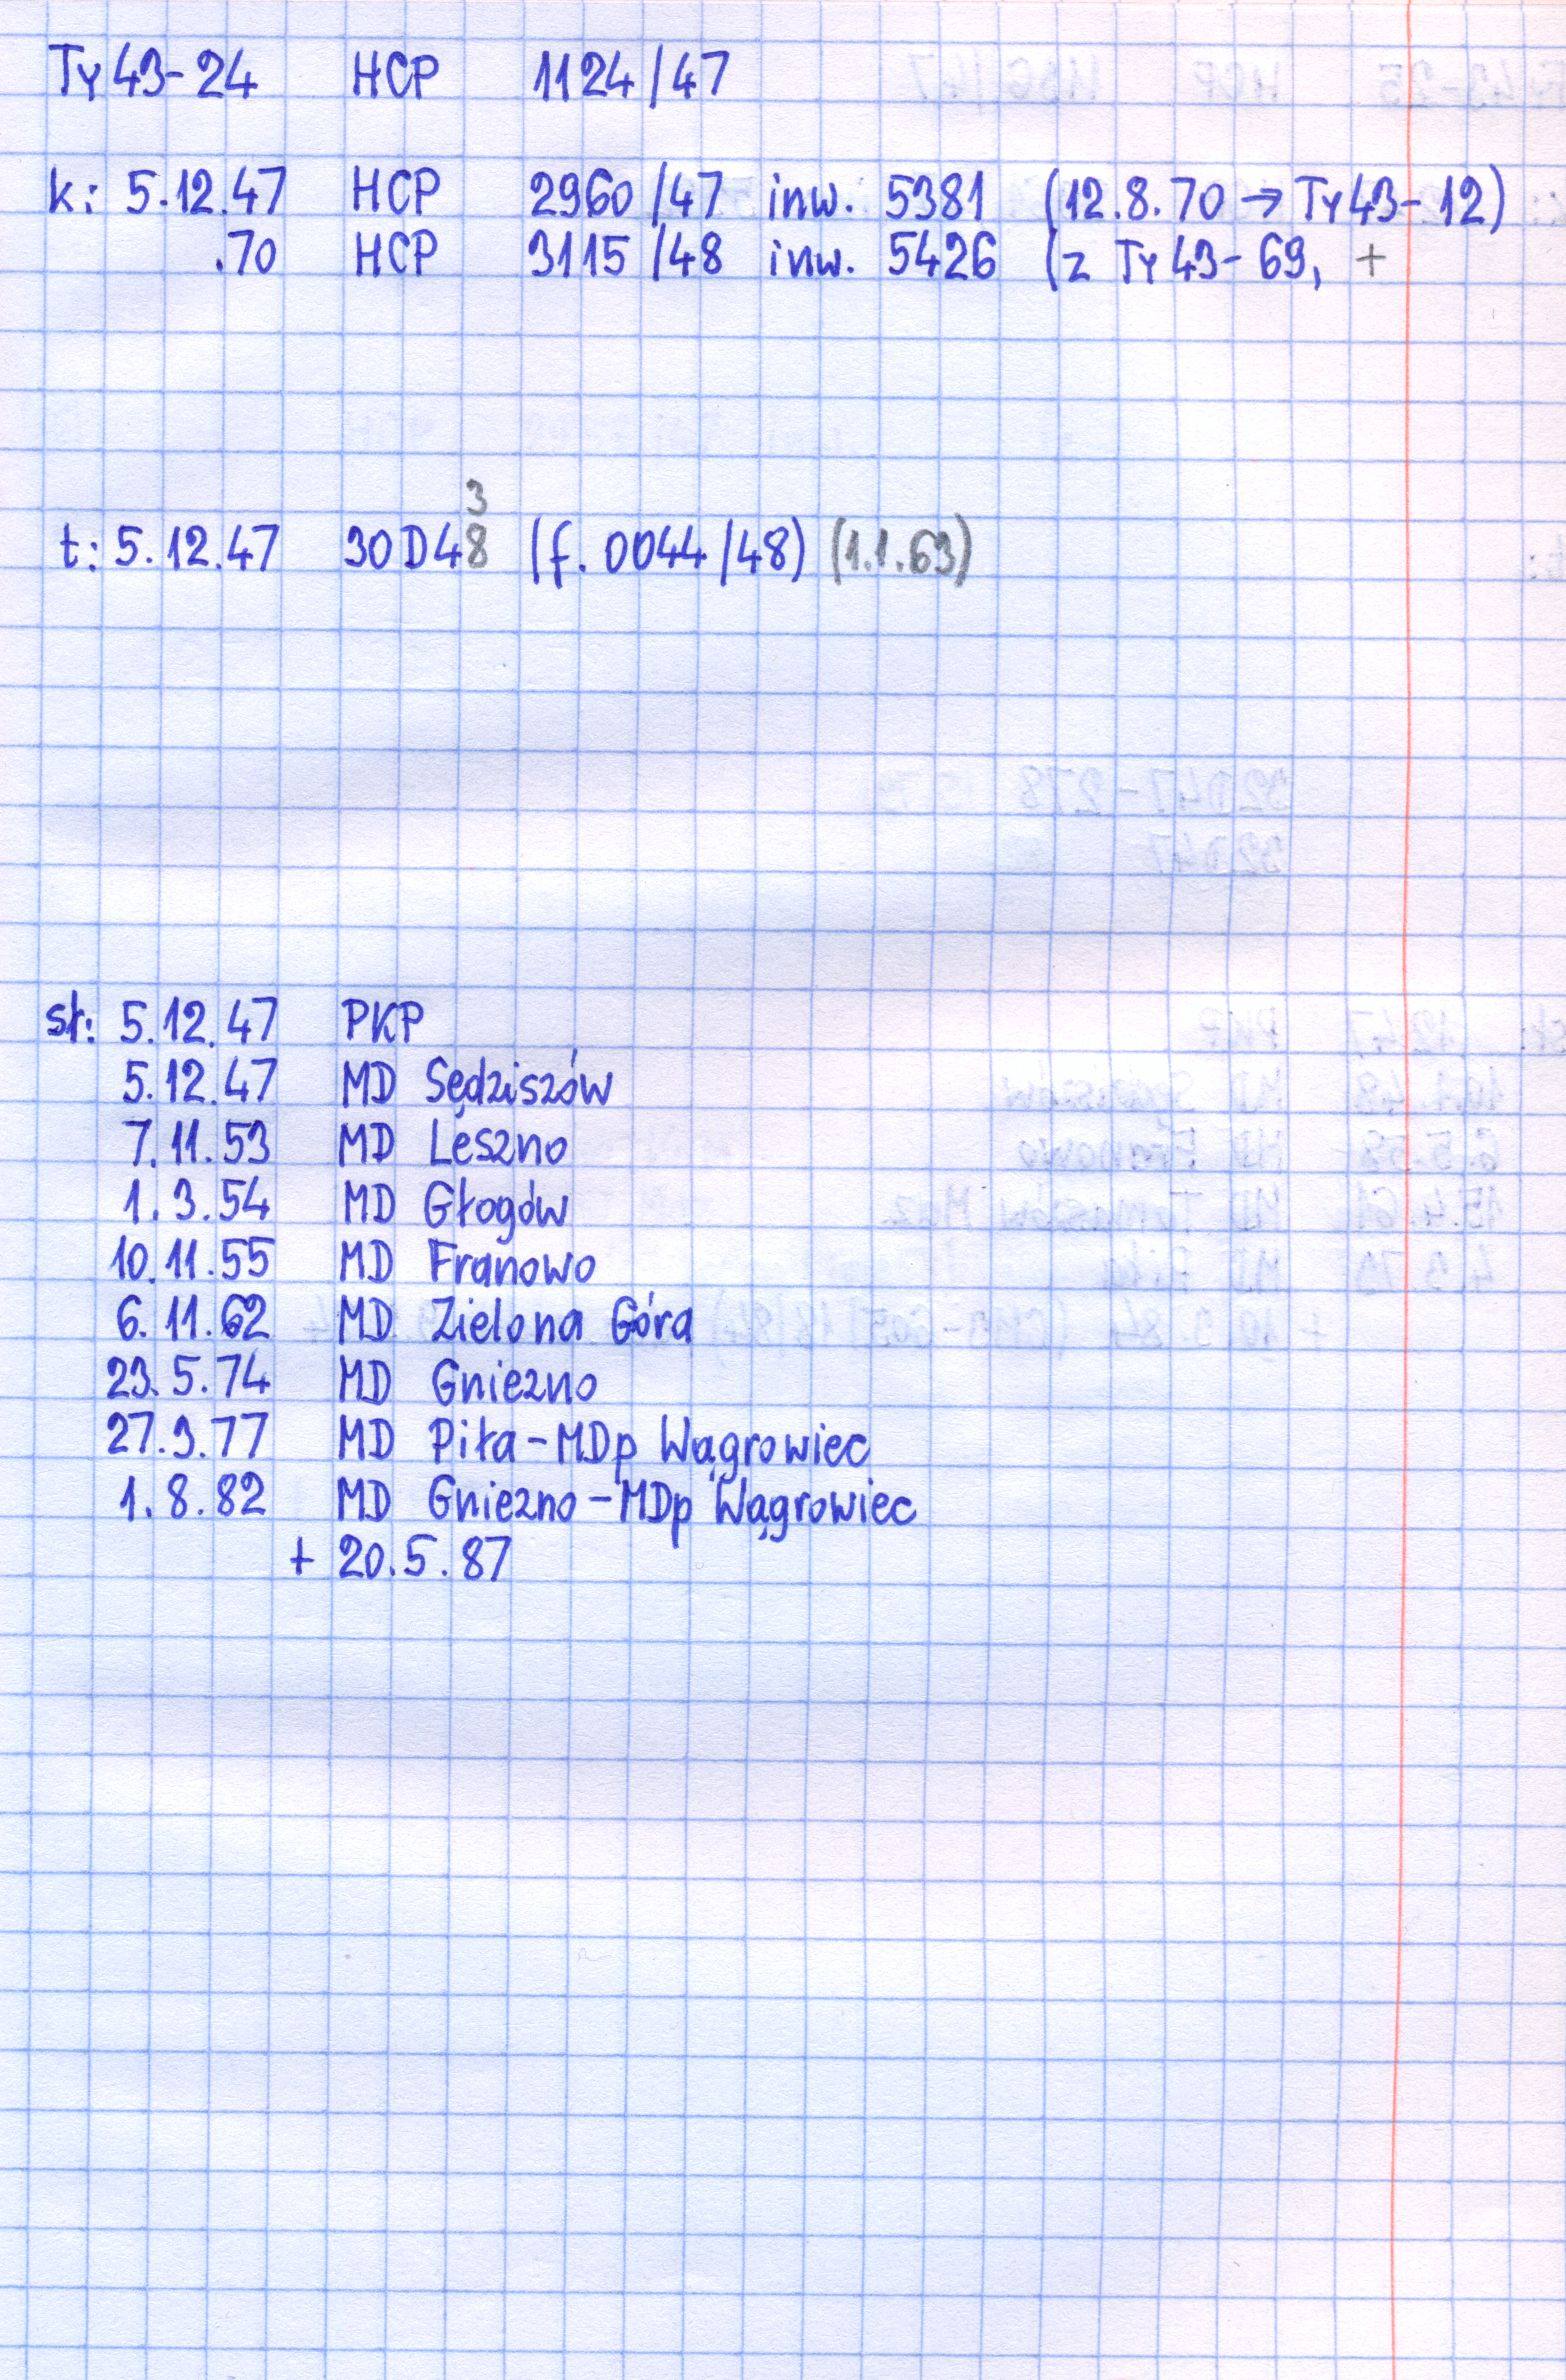 Ty43-24 HCP 1124/47
k: 5.12.47 HCP 2960/47 inw. 5381 (12.8.70 → Ty43-12)
.70 HCP 3115/48 inw. 5426 (z Ty43-69, +
3
t: 5.12.47 30D48 (f. 0044/48) (1.1.63)
st: 5.12.47 PKP
5.12.47 MD Sędziszów
7.11.53 MD Leszno
1.3.54 MD Głogów
10.11.55 MD Franowo
6.11.62 MD Zielona Góra
23.5.74 MD Gniezno
27.9.77 MD Piła-MDp Wągrowiec
1.8.82 MD Gniezno-MDp Wągrowiec
+ 20.5.87